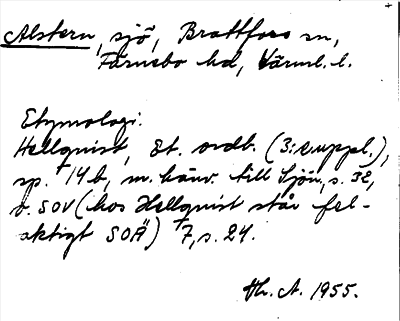 Alstern, sjö, Brattfors sn,
Färnebo hd, Värml. l.
Etymologi:
Hellquist, Et. ordb. (3:e uppl.),
sp. 14 b, m. hänv. till Sjön., s. 32,
o. SOV (hos Hellquist står fel-
aktigt SOÄ) 7, s. 24.
Th. A. 1955.